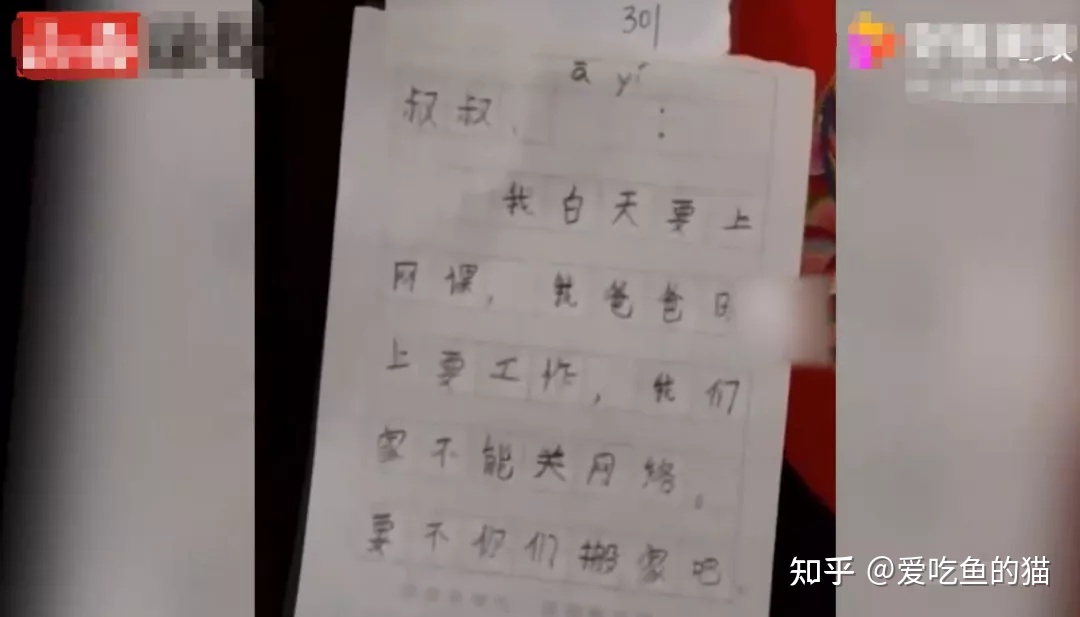 301
ā yí
叔叔、 :
我白天要上
网课，我爸爸
上要工作，我们
家不能关网络。
要不你们搬家吧
知乎 @爱吃鱼的猫